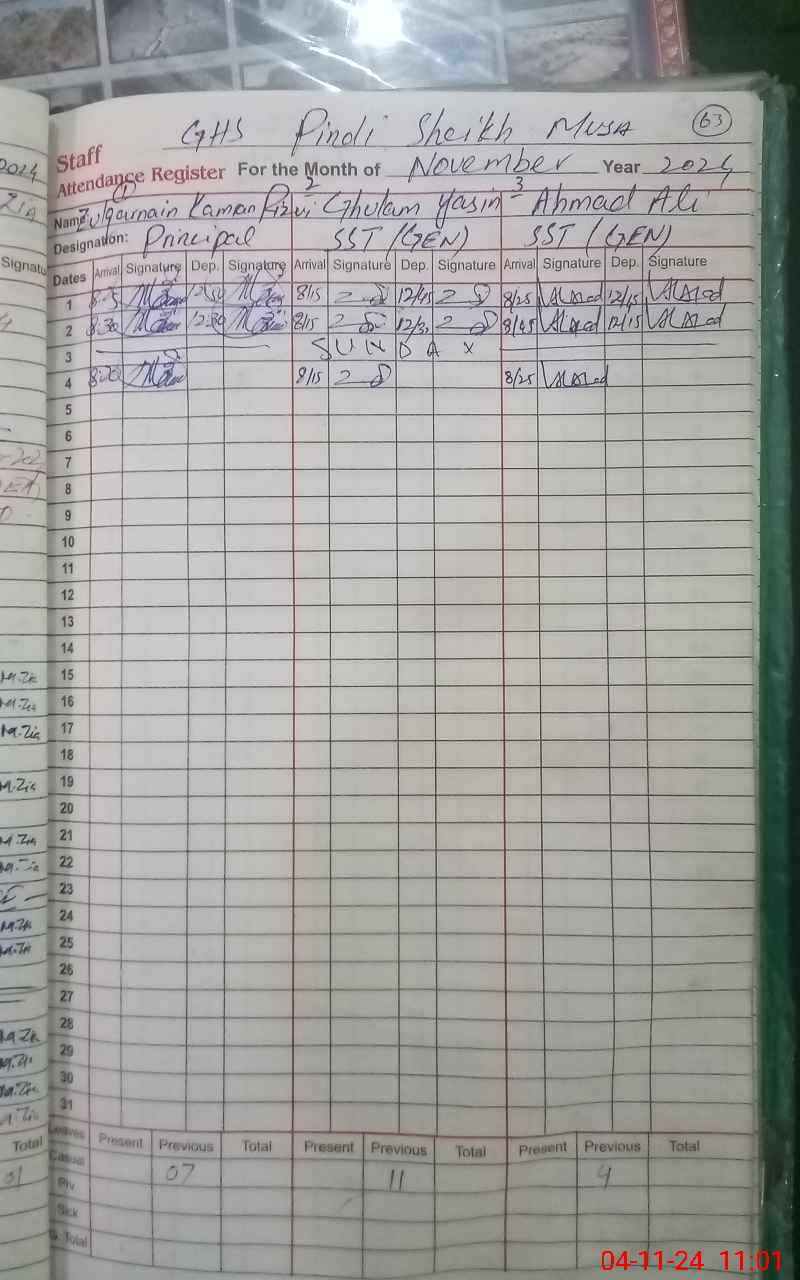 GHS Pindi Sheikh Musa 63
Staff
Attendance Register For the Month of November Year 2024
1 2 3
Name Zulqarnain Kamran Rizvi Ghulam Yasin Ahmad Ali
Designation: Principal SST (GEN) SST (GEN)
Dates Arrival Signature Dep. Signature Arrival Signature Dep. Signature Arrival Signature Dep. Signature
1 8/15 12/45 8/25 12/15
2 8:30 12:30 8/15 12/30 8/45 12/15
3 SUNDAY
4 8/15 8/25
5
6
7
8
9
10
11
12
13
14
15
16
17
18
19
20
21
22
23
24
25
26
27
28
29
30
31
Leaves Present Previous Total Present Previous Total Present Previous Total
Casual 07 11 4
Piv
Sick
G. Total
2024
ZIA
M.Zia
M.Zia
M.Zia
M.Zia
M.Zia
Total
01
04-11-24 11:01